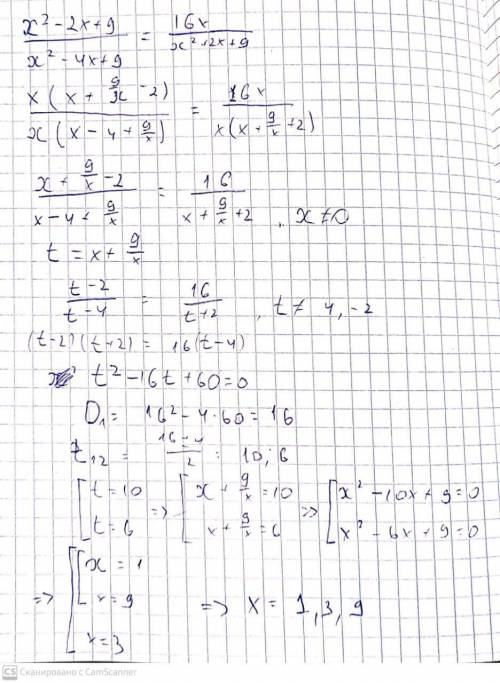 (x² - 2x + 9)/(x² - 4x + 9) = 16x/(x² + 2x + 9)
x(x + 9/x - 2)/(x(x - 4 + 9/x)) = 16x/(x(x + 9/x + 2))
(x + 9/x - 2)/(x - 4 + 9/x) = 16/(x + 9/x + 2) , x ≠ 0
t = x + 9/x
(t - 2)/(t - 4) = 16/(t + 2) , t ≠ 4, -2
(t-2)(t+2) = 16(t-4)
t² - 16t + 60 = 0
D₁ = 16² - 4·60 = 16
t₁₂ = (16 ± 4)/2 = 10; 6
[t = 10 => [x + 9/x = 10 => [x² - 10x + 9 = 0
[t = 6 [x + 9/x = 6 [x² - 6x + 9 = 0
=> [[x = 1
[[x = 9 => x = 1, 3, 9
[x = 3
CS Сканировано с CamScanner